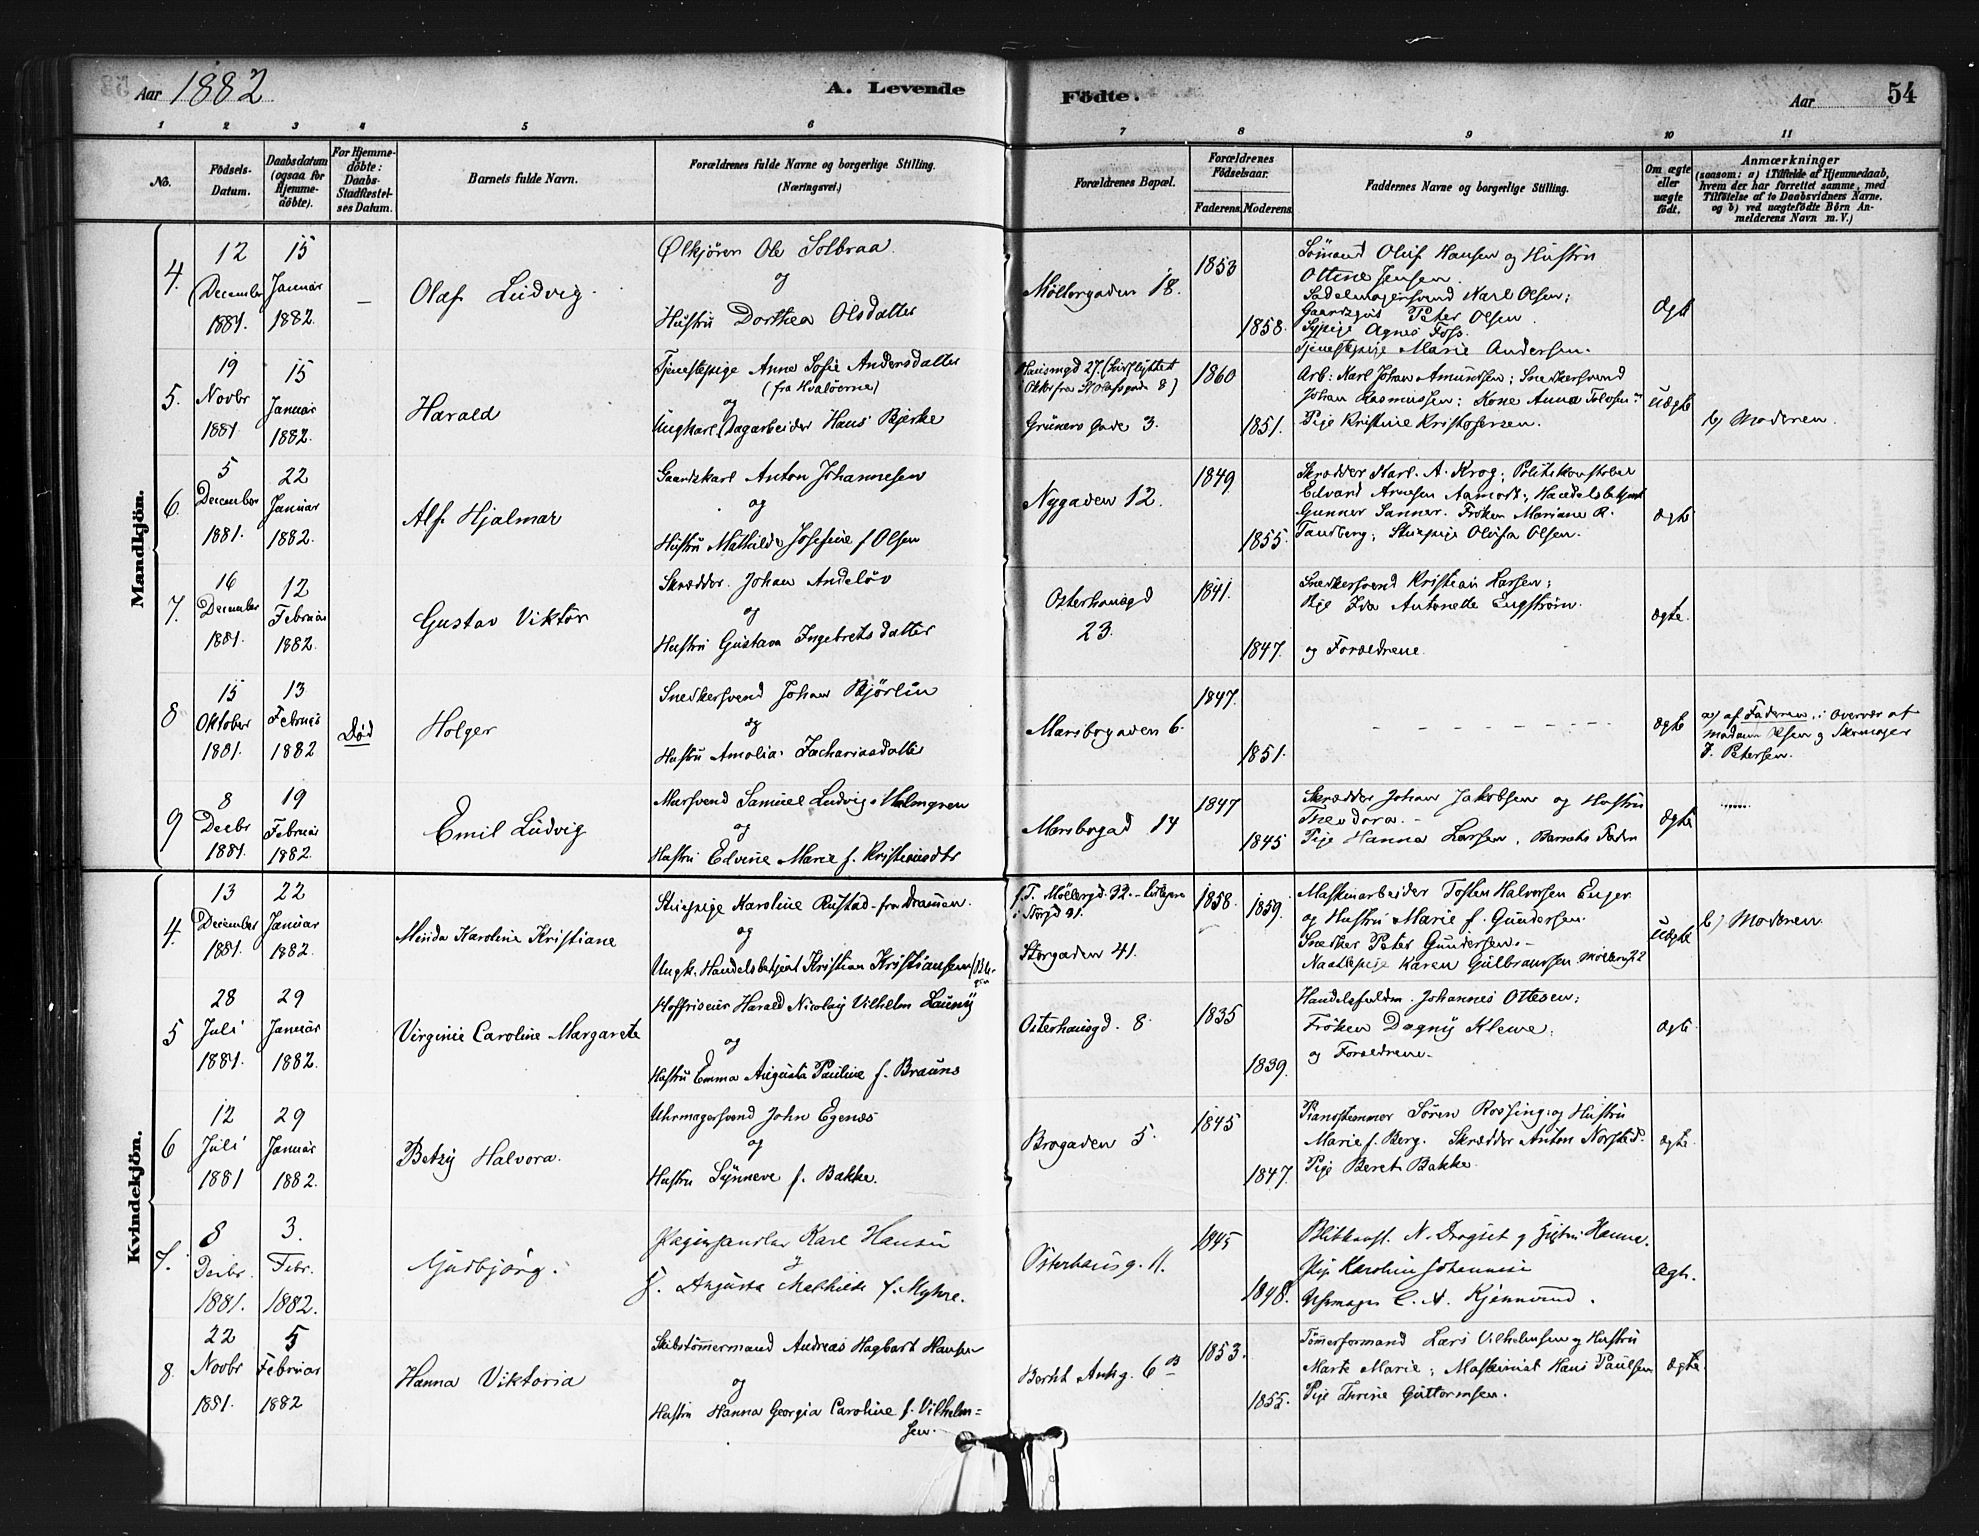 Aar 1882
A. Levende
Födte.
Aar
54
1 2 3 4 5 6 7 8 9 10 11
No.
Födsels-
Datum.
Daabsdatum
(ogsaa for
Hjemme-
döbte).
For Hjemme-
döbte:
Daabs-
Stadfæstel-
ses Datum.
Barnets fulde Navn.
Forældrenes fulde Navne og borgerlige Stilling.
(Næringsvei.)
Forældrenes Bopæl.
Forældrenes
Födselsaar.
Faderens. Moderens.
Faddernes Navne og borgerlige Stilling.
Om ægte
eller
uægte
födt.
Anmærkninger
(saasom: a) i Tilfælde af Hjemmedaab,
hvem der har forrettet samme, med
Tilföielse af to Daabsvidners Navne,
og b) ved uægtefödte Börn An-
melderens Navn m. V.)
Mandkjön.
4.
12
December
1881.
15
Januar
1882.
–
Olaf Ludvig
Ølkjörer Ole Solbraa
og
Hustru Dorthea Olsdatter
Möllergaden 18.
1853
1858.
Sömand Oluf Hansen og Hustru
Ottine Jensen.
Sadelmagersvend Karl Olsen;
Gaardsgut Peter Olsen.
Sypige Agnes Foss.
Tjenestepige Marie Andersen.
Ægte
5.
19
Novbr
1881
15
Januar
1882.
Harald
Tjenestepige Anne Sofie Andersdatter
(fra Hvalöerne)
og
Ungkarl Dagarbeider Hans Bjerke
Hausmgd 27.
St Olafsgade 8)
Grüners Gade 3.
1860
1851.
Arb: Karl Johan Amundsen; Snedkersvend
Johan Rasmussen; Kone Anna
Pige Kristine Kristofersen.
uægte
b) Moderen.
6.
5
December
1881.
22
Januar
1882.
Alf Hjalmar
Gaardskarl Anton Johannesen
og
Hustru Mathilde Josefine f Olsen
Nygaden 12.
1849
1855.
Skrædder Karl. A. Krog; Politikonstabel
Edvard Arnesen Aamodt; Handelsbetjent
Gunner Sanner. Fröken Mariane R.
Tandberg; Stuepige Olufa Olsen.
ægte
7.
16
December
1881.
12
Februar
1882.
Gustav Viktor
Skrædder Johan Andelöv
og
Hustru Gustava Ingebretsdatter
Osterhausgd
23.
1841.
1847.
Snedkersvend Kristian Larsen;
Pige Ida Antonette Engström.
og Forældrene
ægte.
8
15
Oktober
1881.
13
Februar
1882
Död
Holger
Snedkersvend Johan Björlin
og
Hustru Amalia Zachariasdatter
Maribogaden 6.
1847.
1851.
– – – – – – – –
ægte
a) af Faderen, i Overvær af
Madam Olsen og Skomager
J. Petersen.
9
8
Decbr
1881.
19
Februar
1882.
Emil Ludvig
Mursvend Samuel Ludvig Malmgren
og
Hustru Edvine Marie f. Kristiansdtr
Maribogad 14
1847
1845
Skrædder Johan Jakobsen og Hustru
Theodora.-
Pige Hanna Larsen, Barnets Fader
Ægte
Kvindekjön.
4.
13
December
1881.
22
Januar
1882.
Minda Karoline Kristiane
Stuepige Karoline Rustad – fra Dramen.
og
Ungk. Handelsbetjent Kristian Kristiansen
f. T. Möllergd. 32. –
i Storgd 21.
Storgaden 41.
1858.
1859.
Maskinarbeider Tosten Halvorsen Enger
og Hustru Marie f. Gundersen.
Snedker Peter Gundersen. –
Naatlepige Karen Gulbransen Möllerg 22
uægte
b) Moderen
5
28
Juli
1881.
29
Januar
1882.
Virginie Caroline Margarete
Hoffrisör Harald Nicolay Vilhelm Launy
og
Hustru Emma Augusta Pauline f. Brauns
Osterhausgd. 8.
1835
1839.
Handelsfuldm. Johannes Ottesen;
Fröken Dagny Klewe;
og Forældrene.
ægte
6
12
Juli
1881
29
Januar
1882.
Betzy Halvora.
Uhrmagersvend John Egenæs
og
Hustru Synneve f. Bakke.
Brogaden 5.
1845
1847.
Pianostemmer Sören Rossing; og Hustru
Marie f. Berg. Skrædder Anton Norsted.
Pige Beret Bakke
ægte.
7.
8
Decbr.
1881.
3.
Febr.
1882.
Gudbjörg.
Karl Hansen
og
H. Augusta Mathilde f. Myhre.
Osterhausg. 11.
1845
1848.
N. Dragset og Hustru Hanne.
Pige Karoline Johannesen
Uhrmager C. A. Kjennerud.
Ægte.
8.
22
Novbr
1881.
5
Februar
1882
Hanna Viktoria
Skibstömmermand Andreas Hagbart Hansen
og
Hustru Hanna Georgia Caroline f. Vilhelm=
sen.
Bernt Ankg. 6 B
1853.
1855.
Tömmerformand Lars Vilhelmsen og Hustru
Marte Marie; Maskinist Hans Paulsen
Pige Thrine Guttormsen.
ægte